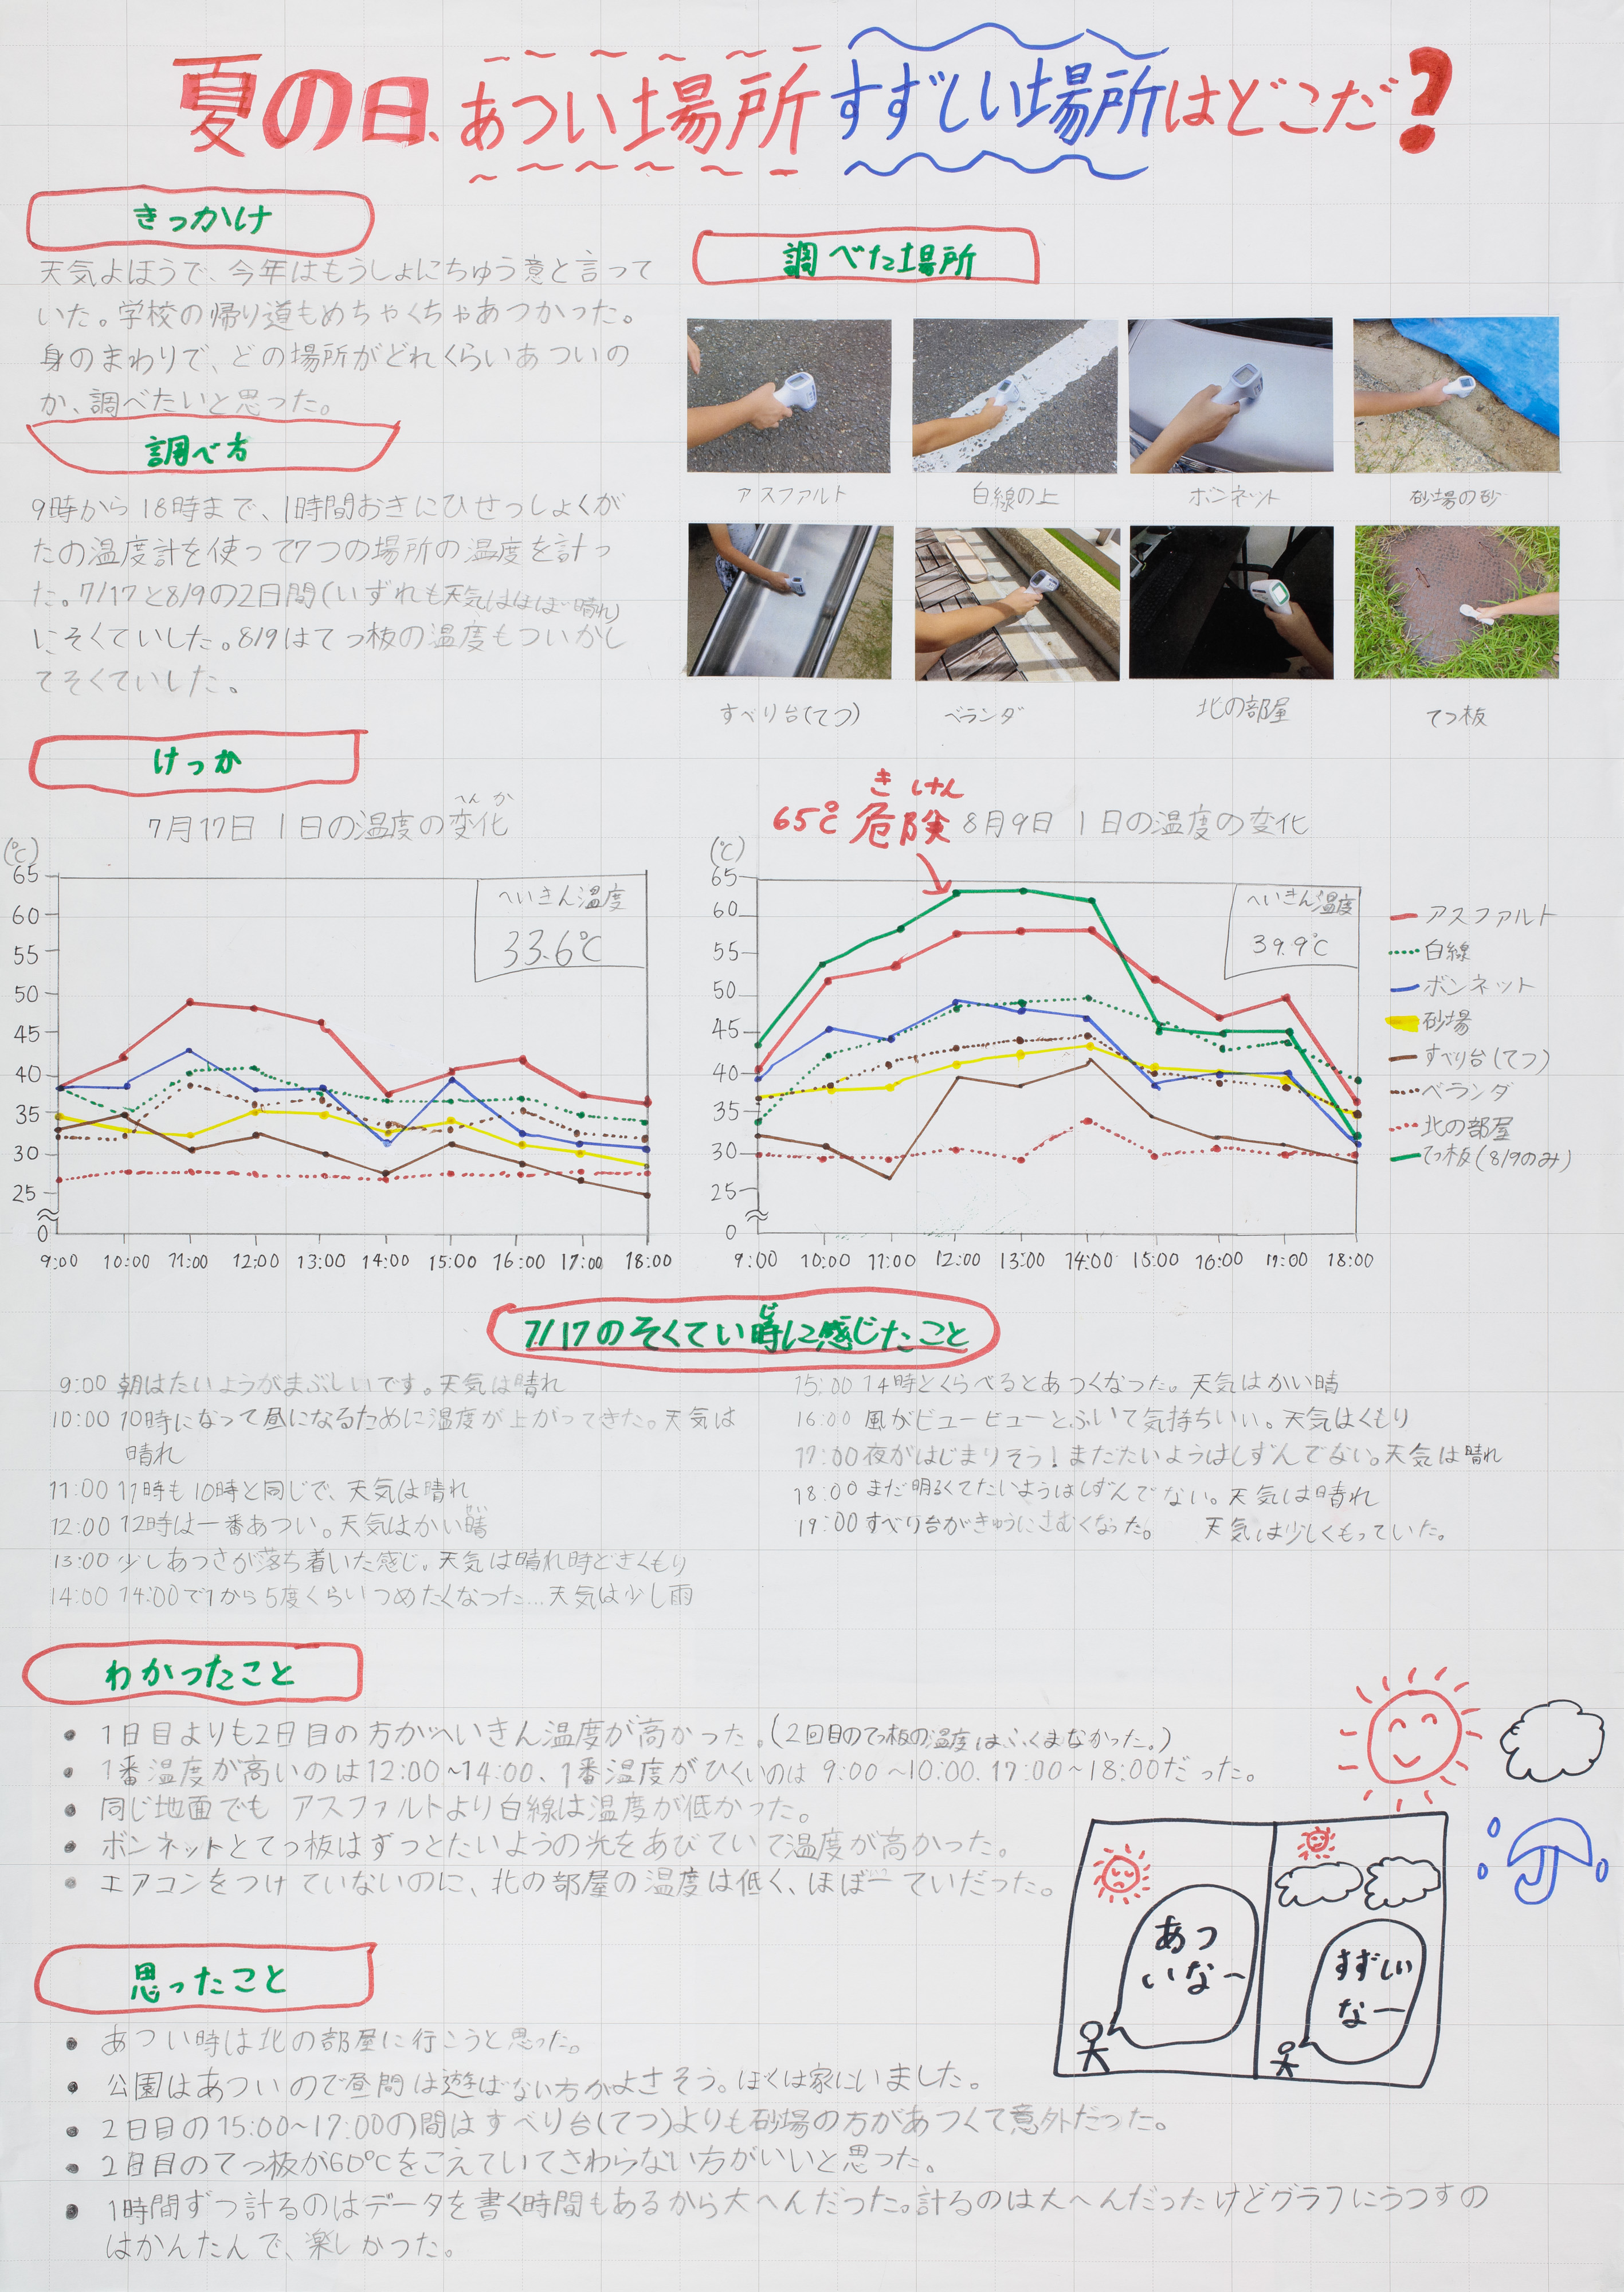 夏の日、あつい場所すずしい場所はどこだ?
きっかけ
天気よほうで、今年はもうしょにちゅう意と言って
いた。学校の帰り道もめちゃくちゃあつかった。
身のまわりで、どの場所がどれくらいあついの
か、調べたいと思った。
調べ方
9時から18時まで、1時間おきにひせっしょくが
たの温度計を使って7つの場所の温度を計っ
た。7/17と8/9の2日間(いずれも天気はほぼ晴れ)
にそくていした。8/9はてつ板の温度もついかし
てそくていした。
調べた場所
アスファルト
白線の上
ボンネット
砂場の砂
すべり台(てつ)
ベランダ
北の部屋
てつ板
けっか
へんか
7月17日 1日の温度の変化
(℃)
65
60
55
50
45
40
35
30
25
0
へいきん温度
33.6℃
9:00 10:00 11:00 12:00 13:00 14:00 15:00 16:00 17:00 18:00
きけん
65℃ 危険
8月9日 1日の温度の変化
(℃)
65
60
55
50
45
40
35
30
25
0
へいきん温度
39.9℃
9:00 10:00 11:00 12:00 13:00 14:00 15:00 16:00 17:00 18:00
アスファルト
白線
ボンネット
砂場
すべり台(てつ)
ベランダ
北の部屋
てつ板(8/9のみ)
じ
7/17のそくてい時に感じたこと
9:00 朝はたいようがまぶしいです。天気は晴れ
10:00 10時になって昼になるために温度が上がってきた。天気は
晴れ
11:00 11時も10時と同じで、天気は晴れ
せい
12:00 12時は一番あつい。天気はかい晴
13:00 少しあつさが落ち着いた感じ。天気は晴れ時どきくもり
14:00 14:00で1から5度くらいつめたくなった…天気は少し雨
15:00 14時とくらべるとあつくなった。天気はかい晴
16:00 風がビュービューとふいて気持ちいい。天気はくもり
17:00 夜がはじまりそう!まだたいようはしずんでない。天気は晴れ
18:00 まだ明るくてたいようはしずんでない。天気は晴れ
19:00 すべり台がきゅうにさむくなった。 天気は少しくもっていた。
わかったこと
• 1日目よりも2日目の方がへいきん温度が高かった。(2回目のてつ板の温度はふくまなかった。)
• 1番温度が高いのは12:00~14:00、1番温度がひくいのは 9:00~10:00、17:00~18:00だった。
• 同じ地面でも アスファルトより白線は温度が低かった。
• ボンネットとてつ板はずっとたいようの光をあびていて温度が高かった。
• エアコンをつけていないのに、北の部屋の温度は低く、ほぼ一ていだった。
あつ
いなー
すずしい
なー
思ったこと
• あつい時は北の部屋に行こうと思った。
• 公園はあついので昼間は遊ばない方がよさそう。ぼくは家にいました。
• 2日目の15:00~17:00の間はすべり台(てつ)よりも砂場の方があつくて意外だった。
• 2日目のてつ板が60℃をこえていてさわらない方がいいと思った。
• 1時間ずつ計るのはデータを書く時間もあるから大へんだった。計るのは大へんだったけどグラフにうつすの
はかんたんで、楽しかった。